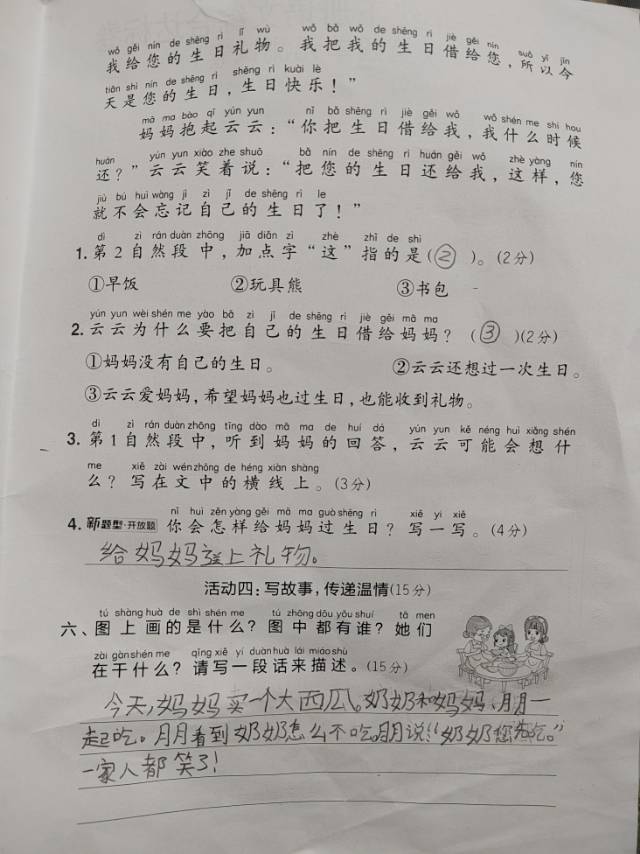 wǒ gěi nín de shēng rì lǐ wù wǒ bǎ wǒ de shēng rì jiè gěi nín suǒ yǐ jīn
我给您的生日礼物。我把我的生日借给您，所以今
tiān shì nín de shēng rì shēng rì kuài lè
天是您的生日，生日快乐！”
mā ma bào qǐ yún yun nǐ bǎ shēng rì jiè gěi wǒ wǒ shén me shí hou
妈妈抱起云云：“你把生日借给我，我什么时候
huán yún yun xiào zhe shuō bǎ nín de shēng rì huán gěi wǒ zhè yàng nín
还？”云云笑着说：“把您的生日还给我，这样，您
jiù bú huì wàng jì zì jǐ de shēng rì le
就不会忘记自己的生日了！”
dì zì rán duàn zhōng jiā diǎn zì zhè zhǐ de shì
1. 第2自然段中，加点字“这”指的是（②）。（2分）
①早饭 ②玩具熊 ③书包
yún yun wèi shén me yào bǎ zì jǐ de shēng rì jiè gěi mā ma
2. 云云为什么要把自己的生日借给妈妈？（③）（2分）
①妈妈没有自己的生日。 ②云云还想过一次生日。
③云云爱妈妈，希望妈妈也过生日，也能收到礼物。
dì zì rán duàn zhōng tīng dào mā ma de huí dá yún yun kě néng huì xiǎng shén
3. 第1自然段中，听到妈妈的回答，云云可能会想什
me xiě zài wén zhōng de héng xiàn shàng
么？写在文中的横线上。（3分）
nǐ huì zěn yàng gěi mā ma guò shēng rì xiě yi xiě
4. 新题型·开放题 你会怎样给妈妈过生日？写一写。（4分）
给妈妈送上礼物。
活动四：写故事，传递温情（15分）
tú shàng huà de shì shén me tú zhōng dōu yǒu shuí tā men
六、图上画的是什么？图中都有谁？她们
zài gàn shén me qǐng xiě yí duàn huà lái miáo shù
在干什么？请写一段话来描述。（15分）
今天，妈妈买一个大西瓜。奶奶和妈妈、月月一
起吃。月月看到奶奶怎么不吃。月月说：“奶奶您先吃。”
一家人都笑了！